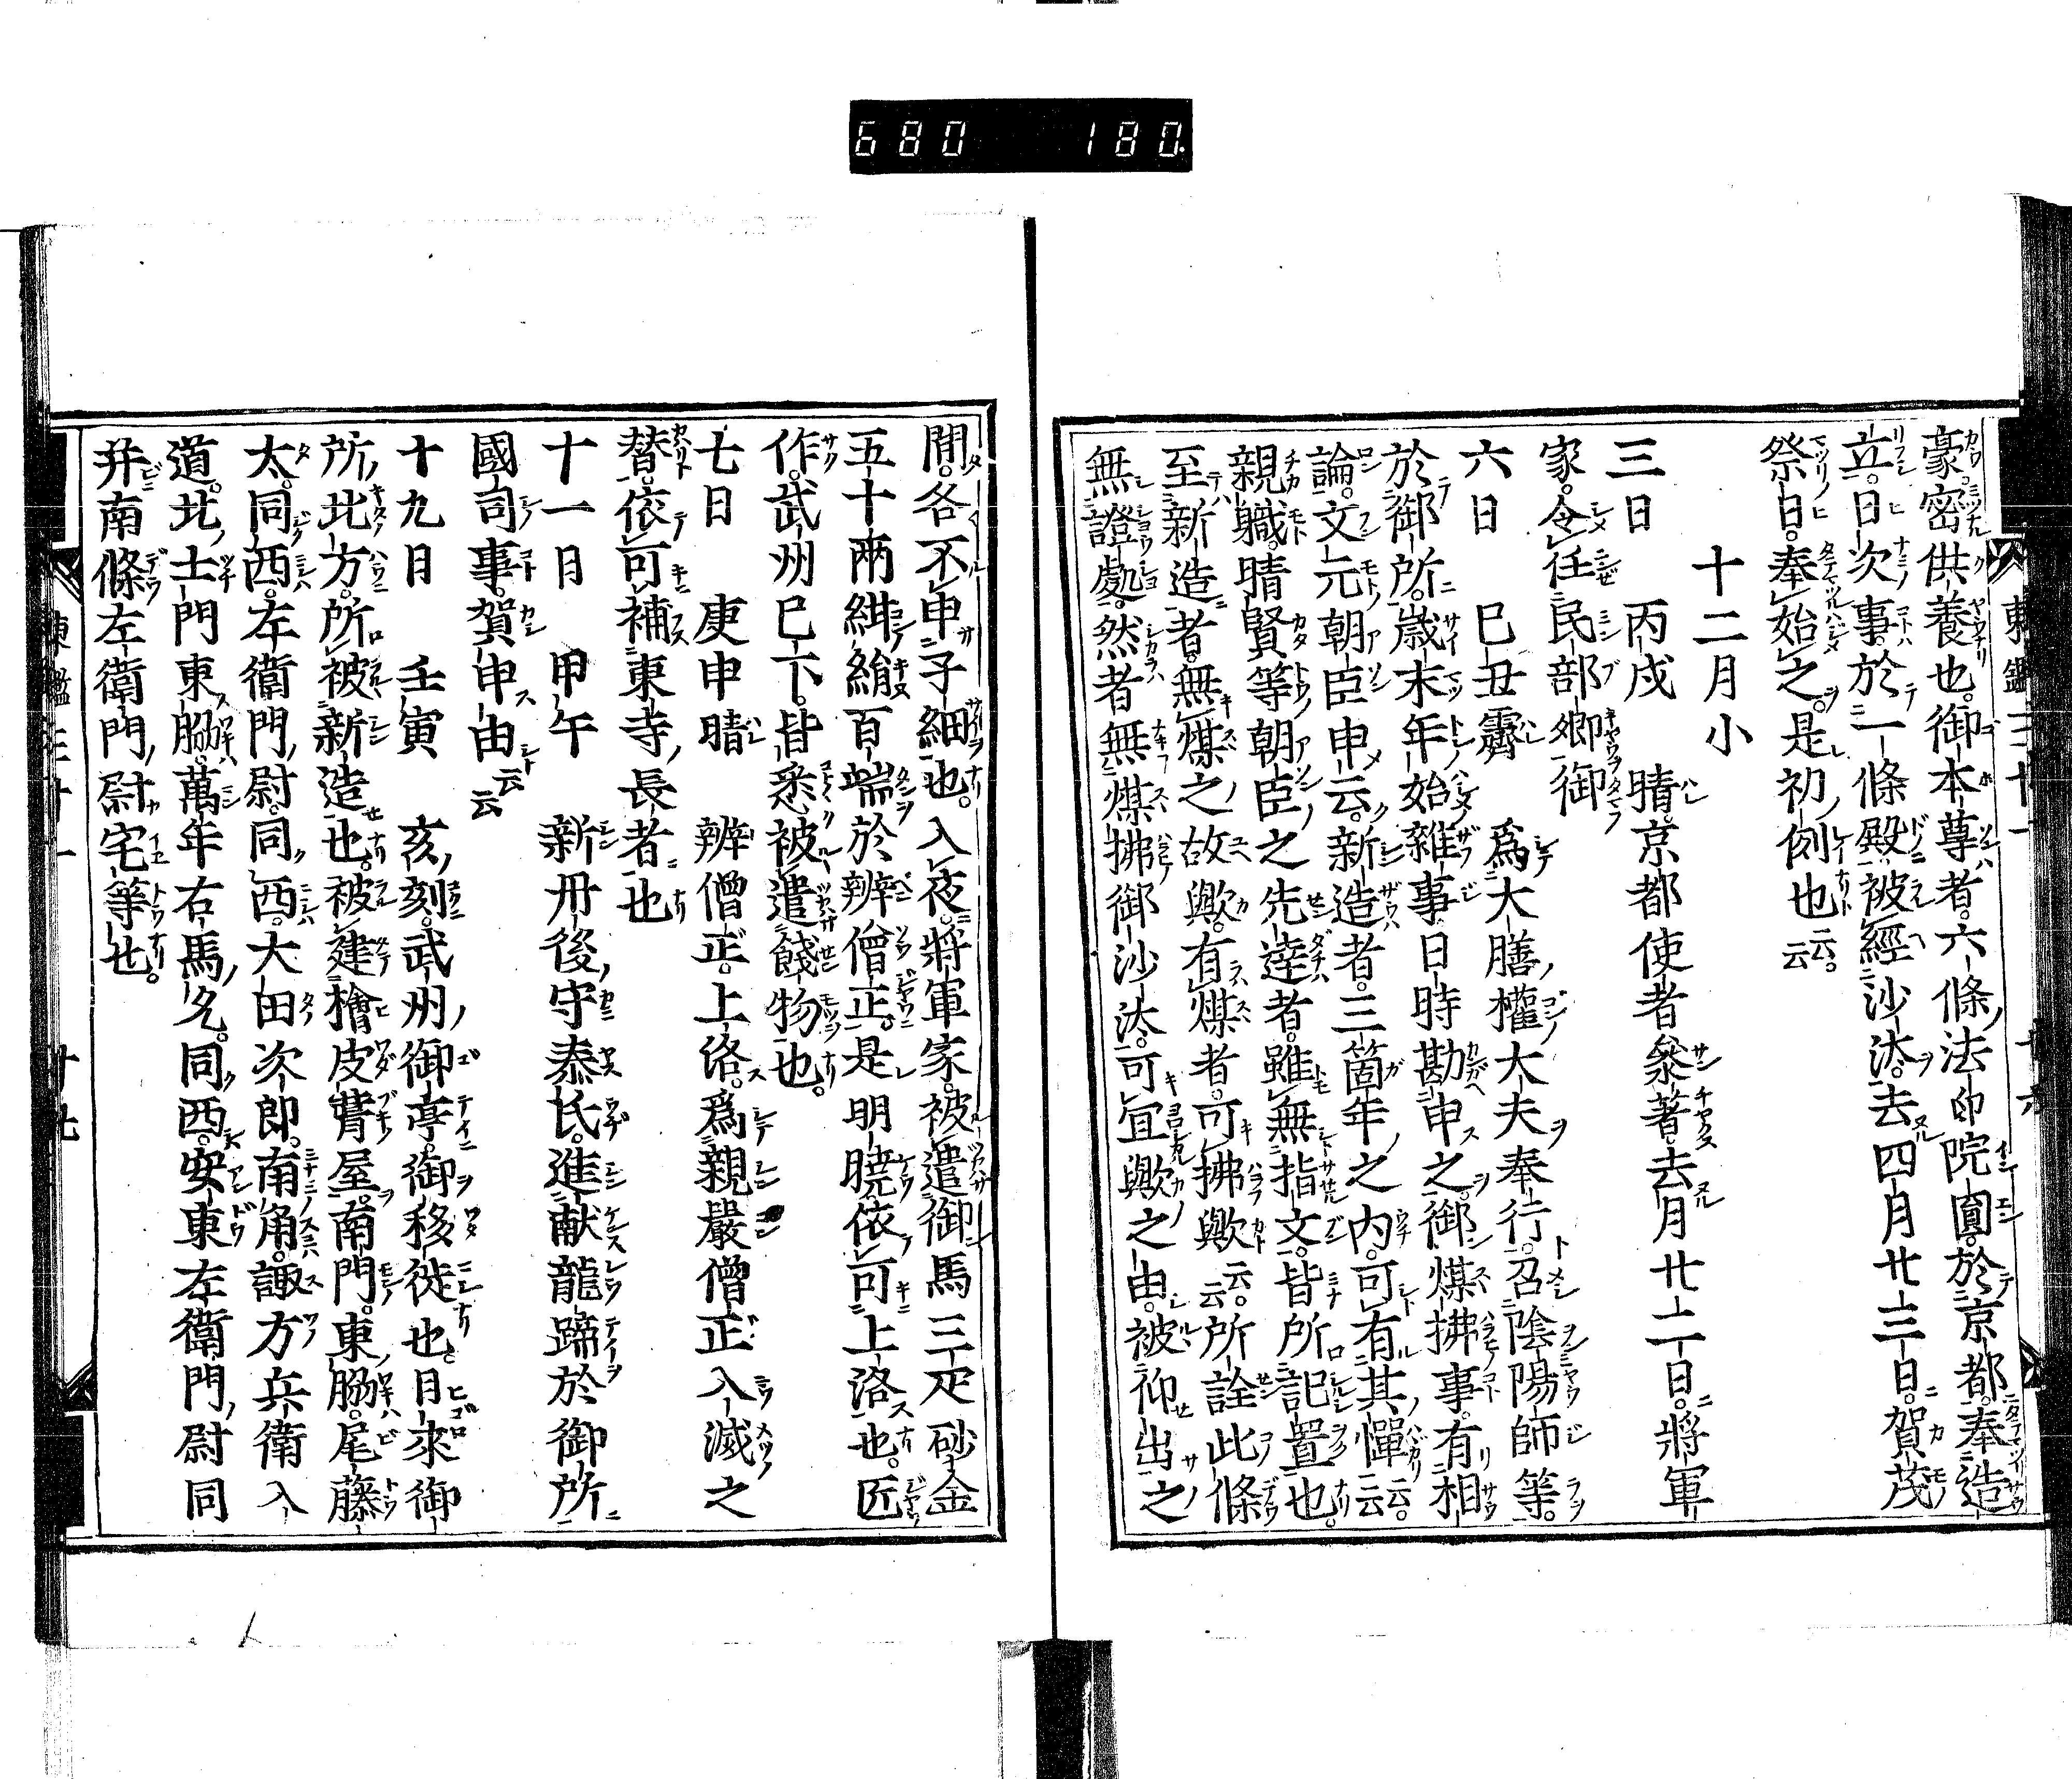 680 180
豪密供養也。御本尊者。六條法印院圓。於京都。奉造
立。日次事。於一條殿被經沙汰。去四月廿三日。賀茂
祭日。奉始之。是初例也云云。
十二月小
三日 丙戌 晴。京都使者參著。去月廿二日。將軍
家。令任民部卿御
六日 巳丑霽 爲大膳權大夫奉行。召陰陽師等。
於御所。歳末年始雜事。日時勘申之。御煤拂事。有相
論。文元朝臣申云。新造者。三箇年之内。可有其憚云云。
親職。晴賢等朝臣之先達者。雖無指文。皆所記置也。
至新造者。無煤之故歟。有煤者。可拂歟云云。所詮此條
無證處。然者無煤拂御沙汰。可宜歟之由。被仰出之
間。各不申子細也。入夜。將軍家。被遣御馬三疋砂金
五十兩紺絹百端於辨僧正。是明曉依可上洛也。匠
作。武州已下。皆悉被遣餞物也。
七日 庚申晴 辨僧正。上洛。爲親嚴僧正入滅之
替。依可補東寺長者也
十一日 甲午 新丹後守泰氏。進献龍蹄於御所
國司事。賀申由云云
十九日 壬寅 亥刻。武州御亭御移徙也。日來御
所北方。所被新造也。被建檜皮葺屋。南門。東脇。尾藤
太。同西。左衛門尉。同西。大田次郎。南角。諏方兵衛入
道。北土門東脇。萬年右馬允。同西。安東左衛門尉同
并南條左衛門尉宅等也。